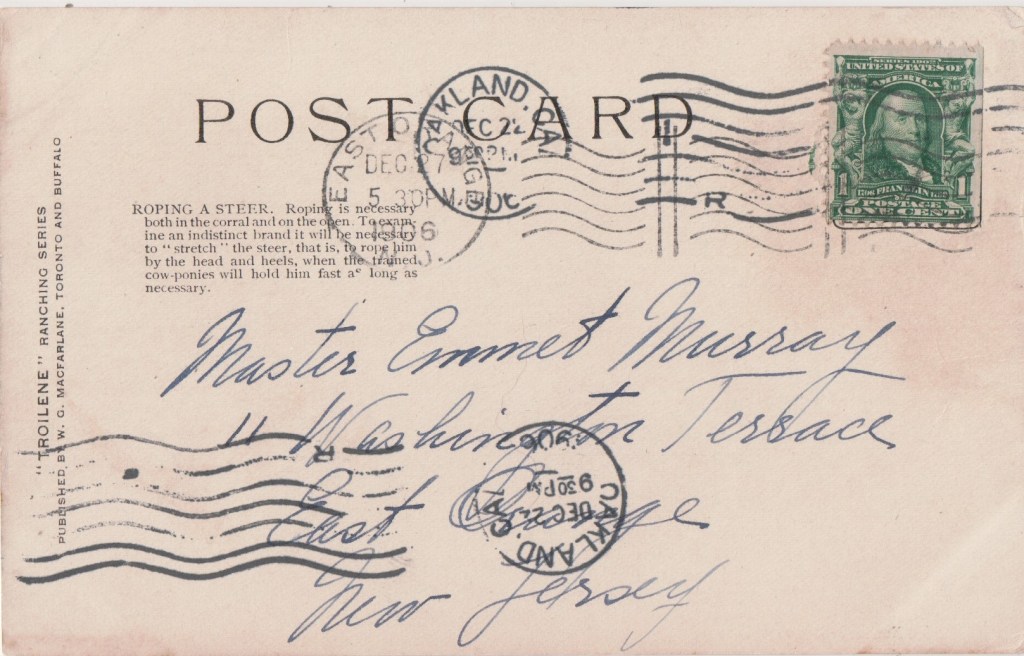 POST CARD
SERIES 1902
UNITED STATES OF
AMERICA
1 FRANKLIN 1
POSTAGE
ONE CENT
OAKLAND, CAL
DEC 22
930PM
EAST O
DEC 27
5 30PM
1906
N.J.
R
ROPING A STEER. Roping is necessary
both in the corral and on the open. To exam-
ine an indistinct brand it will be necessary
to "stretch" the steer, that is, to rope him
by the head and heels, when the trained
cow-ponies will hold him fast as long as
necessary.
"TROILENE" RANCHING SERIES
PUBLISHED BY W. G. MACFARLANE, TORONTO AND BUFFALO
Master Emmet Murray
11 Washington Terrace
East Orange
New Jersey
R
OAKLAND, CAL
DEC 22
930PM